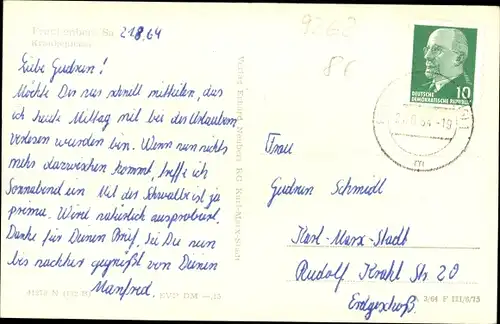 Frankenberg, Sa
Krankenhaus
21.8.64
9262
Liebe Gudrun!
Möchte Dir nur schnell mitteilen, das
ich heute Mittag mit bei den Urlaubern
verloren wurden bin. Wenn nun nichts
mehr dazwischen kommt, treffe ich
Sonnabend ein. Mit der Schwalbe ist ja
prima. Wird natürlich ausprobiert.
Danke für Deinen Brief. Sei Du nun
bis nachher gegrüßt von Deinen
Manfred.
EVP DM -,15
Verlag Erhard Neubert KG Karl-Marx-Stadt
10
DEUTSCHE
DEMOKRATISCHE REPUBLIK
Frau
Gudrun Schmidl
Karl-Marx-Stadt
Rudolf Krahl Str. 20
Erdgeschoß